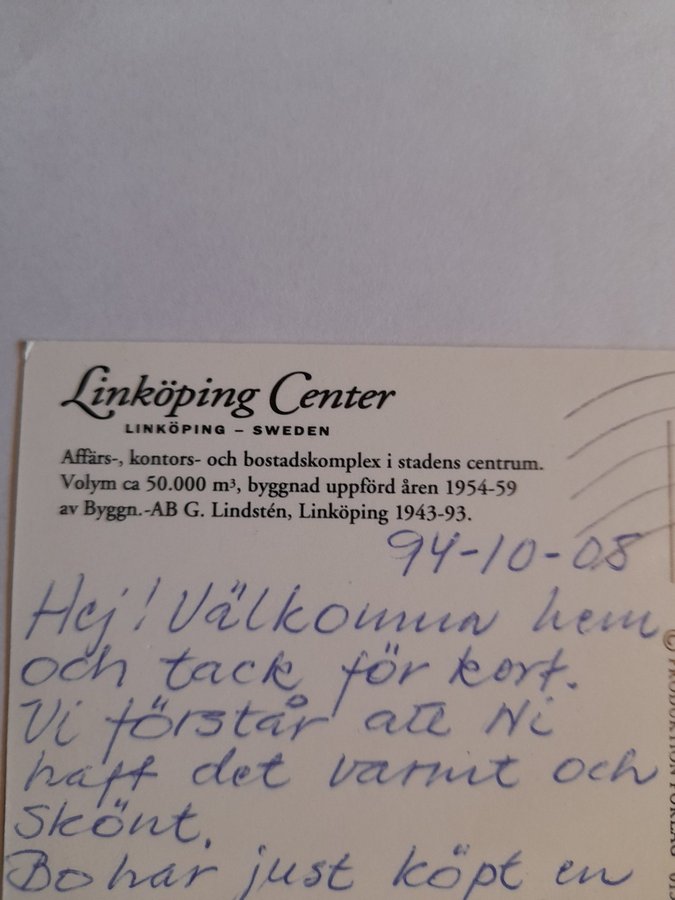 Linköping Center
LINKÖPING – SWEDEN
Affärs-, kontors- och bostadskomplex i stadens centrum.
Volym ca 50.000 m³, byggnad uppförd åren 1954-59
av Byggn.-AB G. Lindstén, Linköping 1943-93.
94-10-08
Hej! Välkommen hem
och tack för kort.
Vi förstår att Ni
haft det varmt och
skönt.
Bo har just köpt en